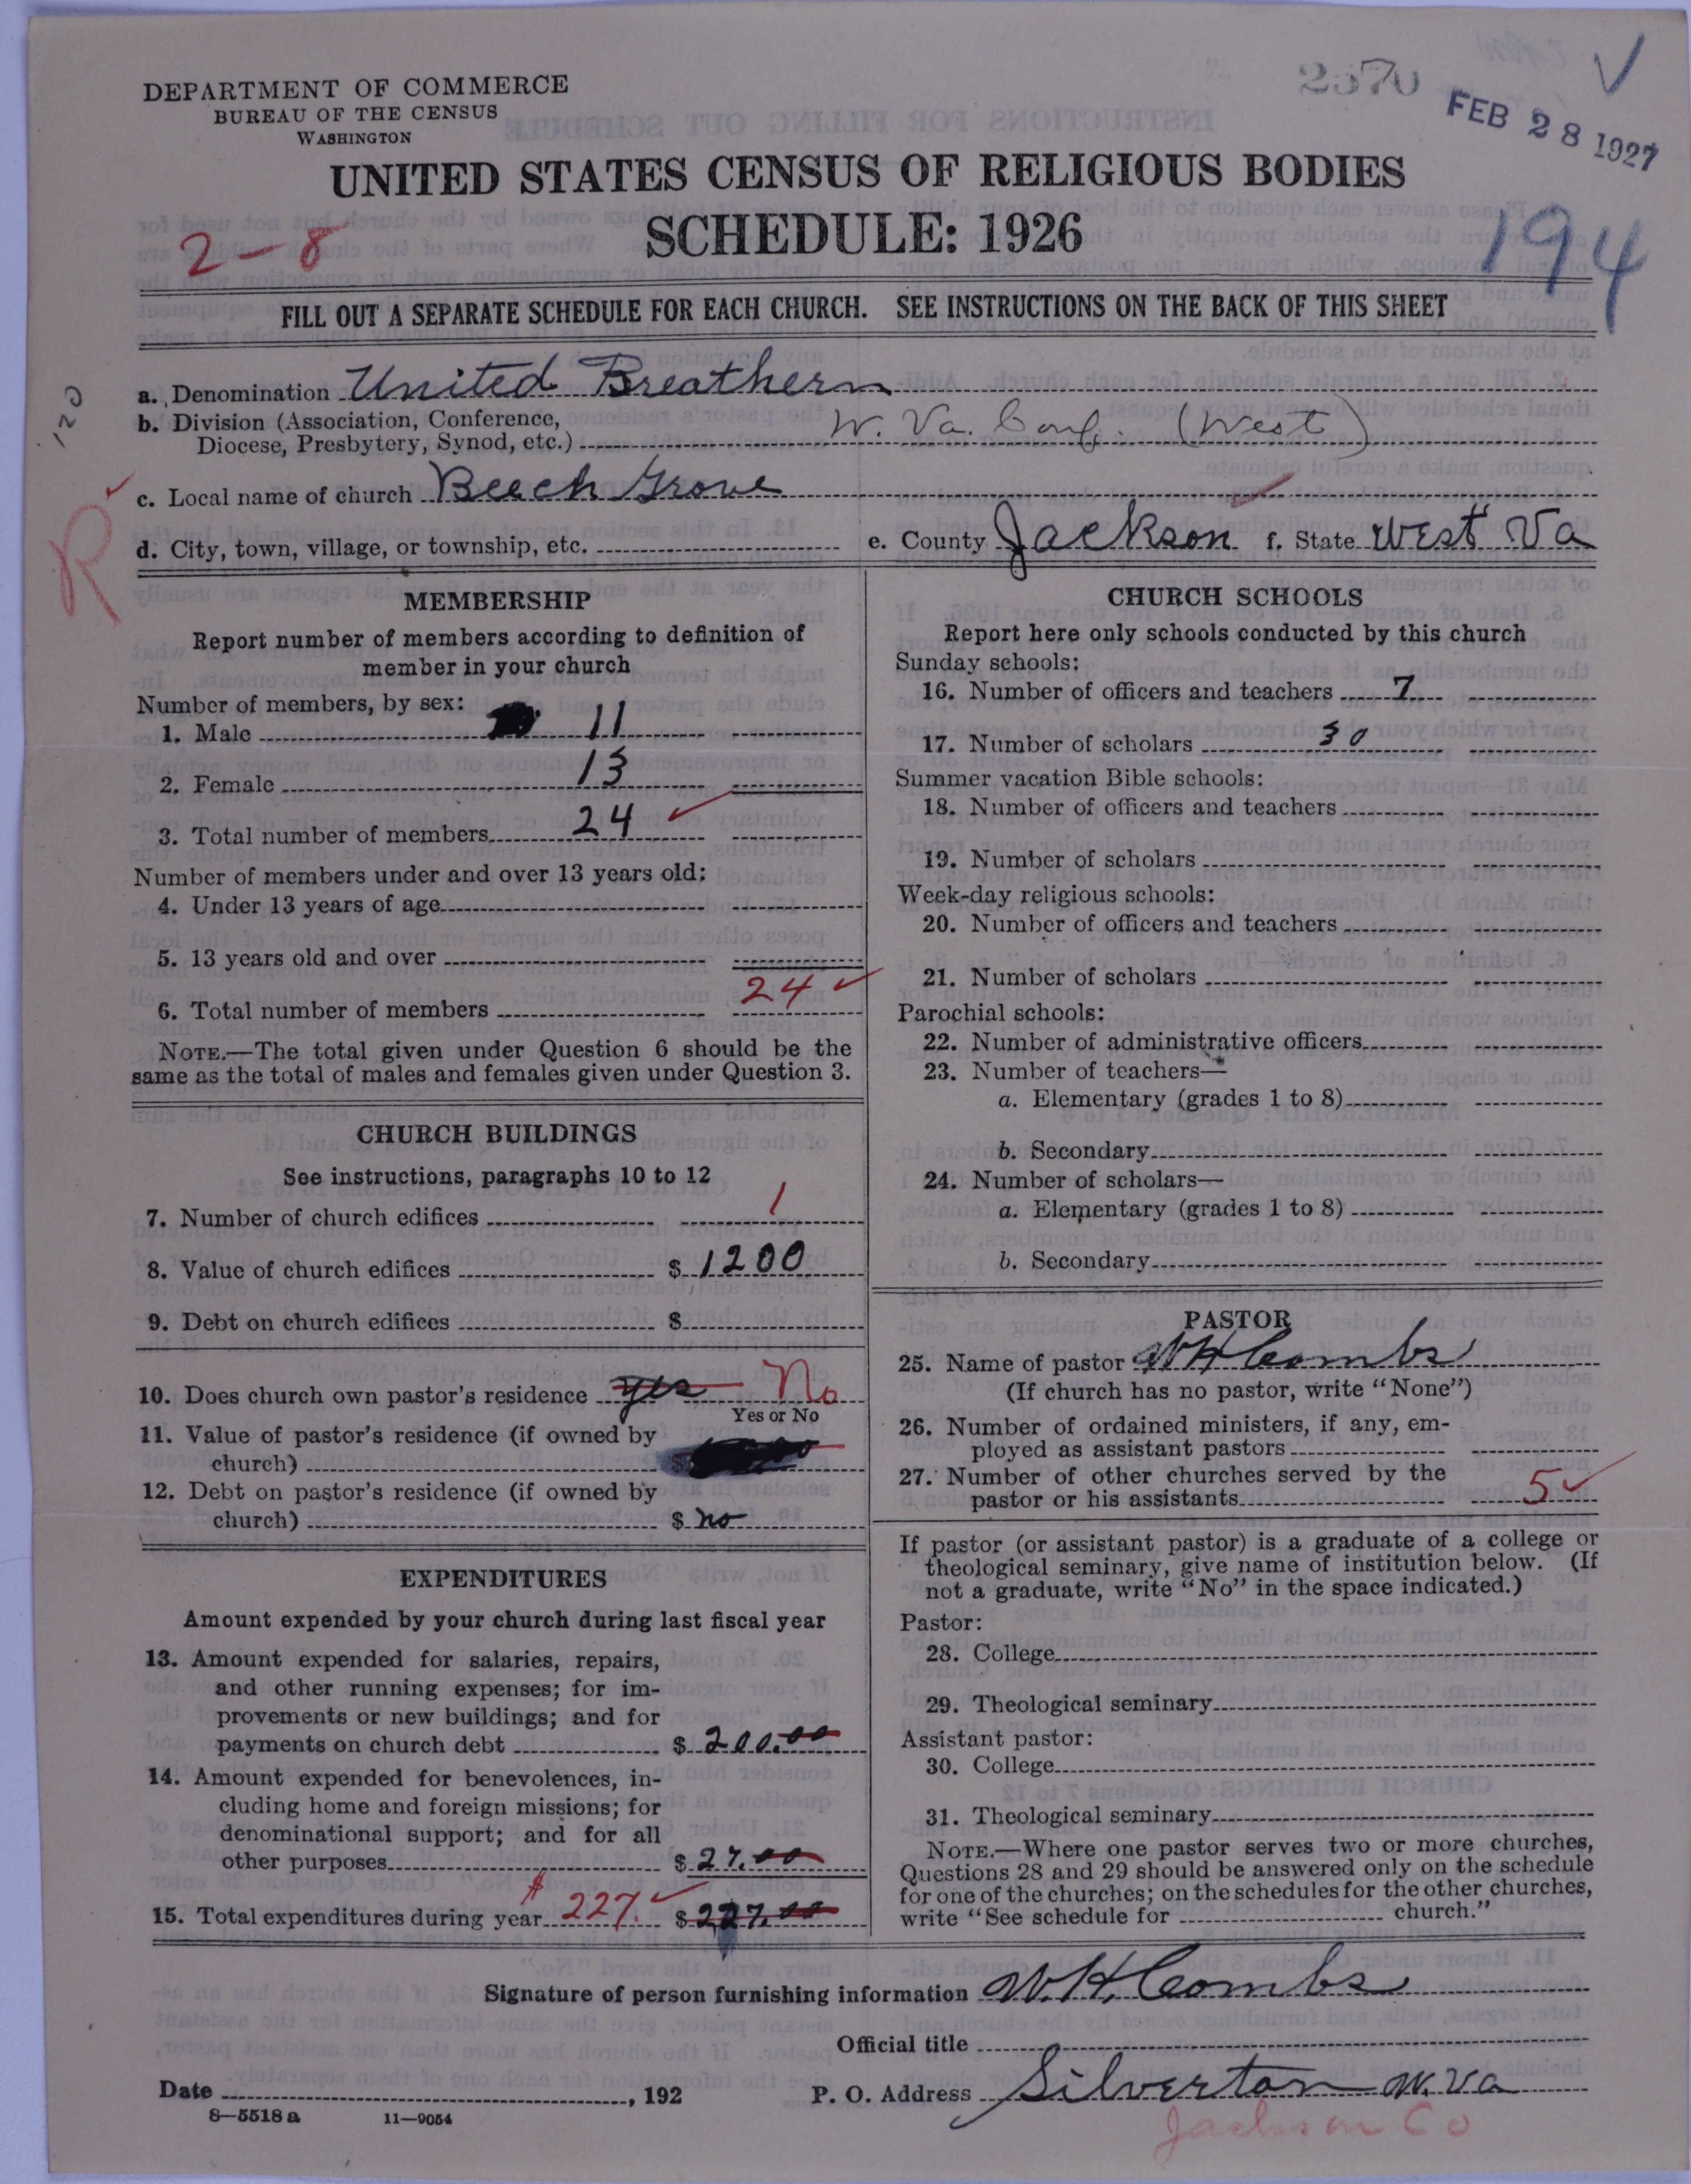 DEPARTMENT OF COMMERCE
BUREAU OF THE CENSUS
WASHINGTON
2570
FEB 28 1927
UNITED STATES CENSUS OF RELIGIOUS BODIES
SCHEDULE: 1926
2-8
194
FILL OUT A SEPARATE SCHEDULE FOR EACH CHURCH. SEE INSTRUCTIONS ON THE BACK OF THIS SHEET
120
a. Denomination United Breathern
b. Division (Association, Conference,
Diocese, Presbytery, Synod, etc.) W. Va. Conf. (West)
c. Local name of church Beech Grove
R
d. City, town, village, or township, etc. e. County Jackson f. State West Va
MEMBERSHIP
Report number of members according to definition of
member in your church
Number of members, by sex:
1. Male 11
2. Female 13
3. Total number of members 24
Number of members under and over 13 years old:
4. Under 13 years of age
5. 13 years old and over
6. Total number of members 24
NOTE.—The total given under Question 6 should be the
same as the total of males and females given under Question 3.
CHURCH BUILDINGS
See instructions, paragraphs 10 to 12
7. Number of church edifices 1
8. Value of church edifices $ 1200
9. Debt on church edifices $
10. Does church own pastor's residence yes No
Yes or No
11. Value of pastor's residence (if owned by
church) $
12. Debt on pastor's residence (if owned by
church) $ no
EXPENDITURES
Amount expended by your church during last fiscal year
13. Amount expended for salaries, repairs,
and other running expenses; for im-
provements or new buildings; and for
payments on church debt $ 200.00
14. Amount expended for benevolences, in-
cluding home and foreign missions; for
denominational support; and for all
other purposes $ 27.00
15. Total expenditures during year $ 227. $ 227.00
CHURCH SCHOOLS
Report here only schools conducted by this church
Sunday schools:
16. Number of officers and teachers 7
17. Number of scholars 30
Summer vacation Bible schools:
18. Number of officers and teachers
19. Number of scholars
Week-day religious schools:
20. Number of officers and teachers
21. Number of scholars
Parochial schools:
22. Number of administrative officers
23. Number of teachers—
a. Elementary (grades 1 to 8)
b. Secondary
24. Number of scholars—
a. Elementary (grades 1 to 8)
b. Secondary
PASTOR
25. Name of pastor W H Combs
(If church has no pastor, write "None")
26. Number of ordained ministers, if any, em-
ployed as assistant pastors
27. Number of other churches served by the
pastor or his assistants 5
If pastor (or assistant pastor) is a graduate of a college or
theological seminary, give name of institution below. (If
not a graduate, write "No" in the space indicated.)
Pastor:
28. College
29. Theological seminary
Assistant pastor:
30. College
31. Theological seminary
NOTE.—Where one pastor serves two or more churches,
Questions 28 and 29 should be answered only on the schedule
for one of the churches; on the schedules for the other churches,
write "See schedule for church."
Signature of person furnishing information W. H. Combs
Official title
Date , 192 P. O. Address Silverton W. Va
8—5518 a 11—9054
Jackson Co